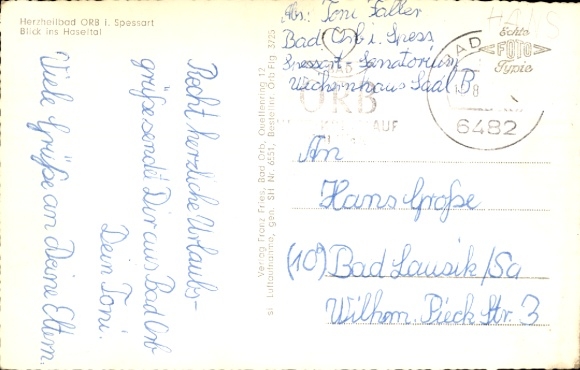 Herzheilbad ORB i. Spessart
Blick ins Haseltal
Recht herzliche Urlaubs-
grüße sendet Dir aus Bad Orb
Dein Toni.
Viele Grüße an Deine Eltern.
Verlag Franz Fries, Bad Orb, Quellenring 12
gen. SH Nr. 6551, Bestellnr. Orb Flg 3725
Abs.: Toni Faller
Bad Orb i. Spess
Spessart Sanatorium
Wichernhaus Saal B
BAD
ORB
AUF
6482
Echte
FOTO
Typie
An
Hans Große
(10) Bad Lausik/Sa
Wilhm. Pieck Str. 3